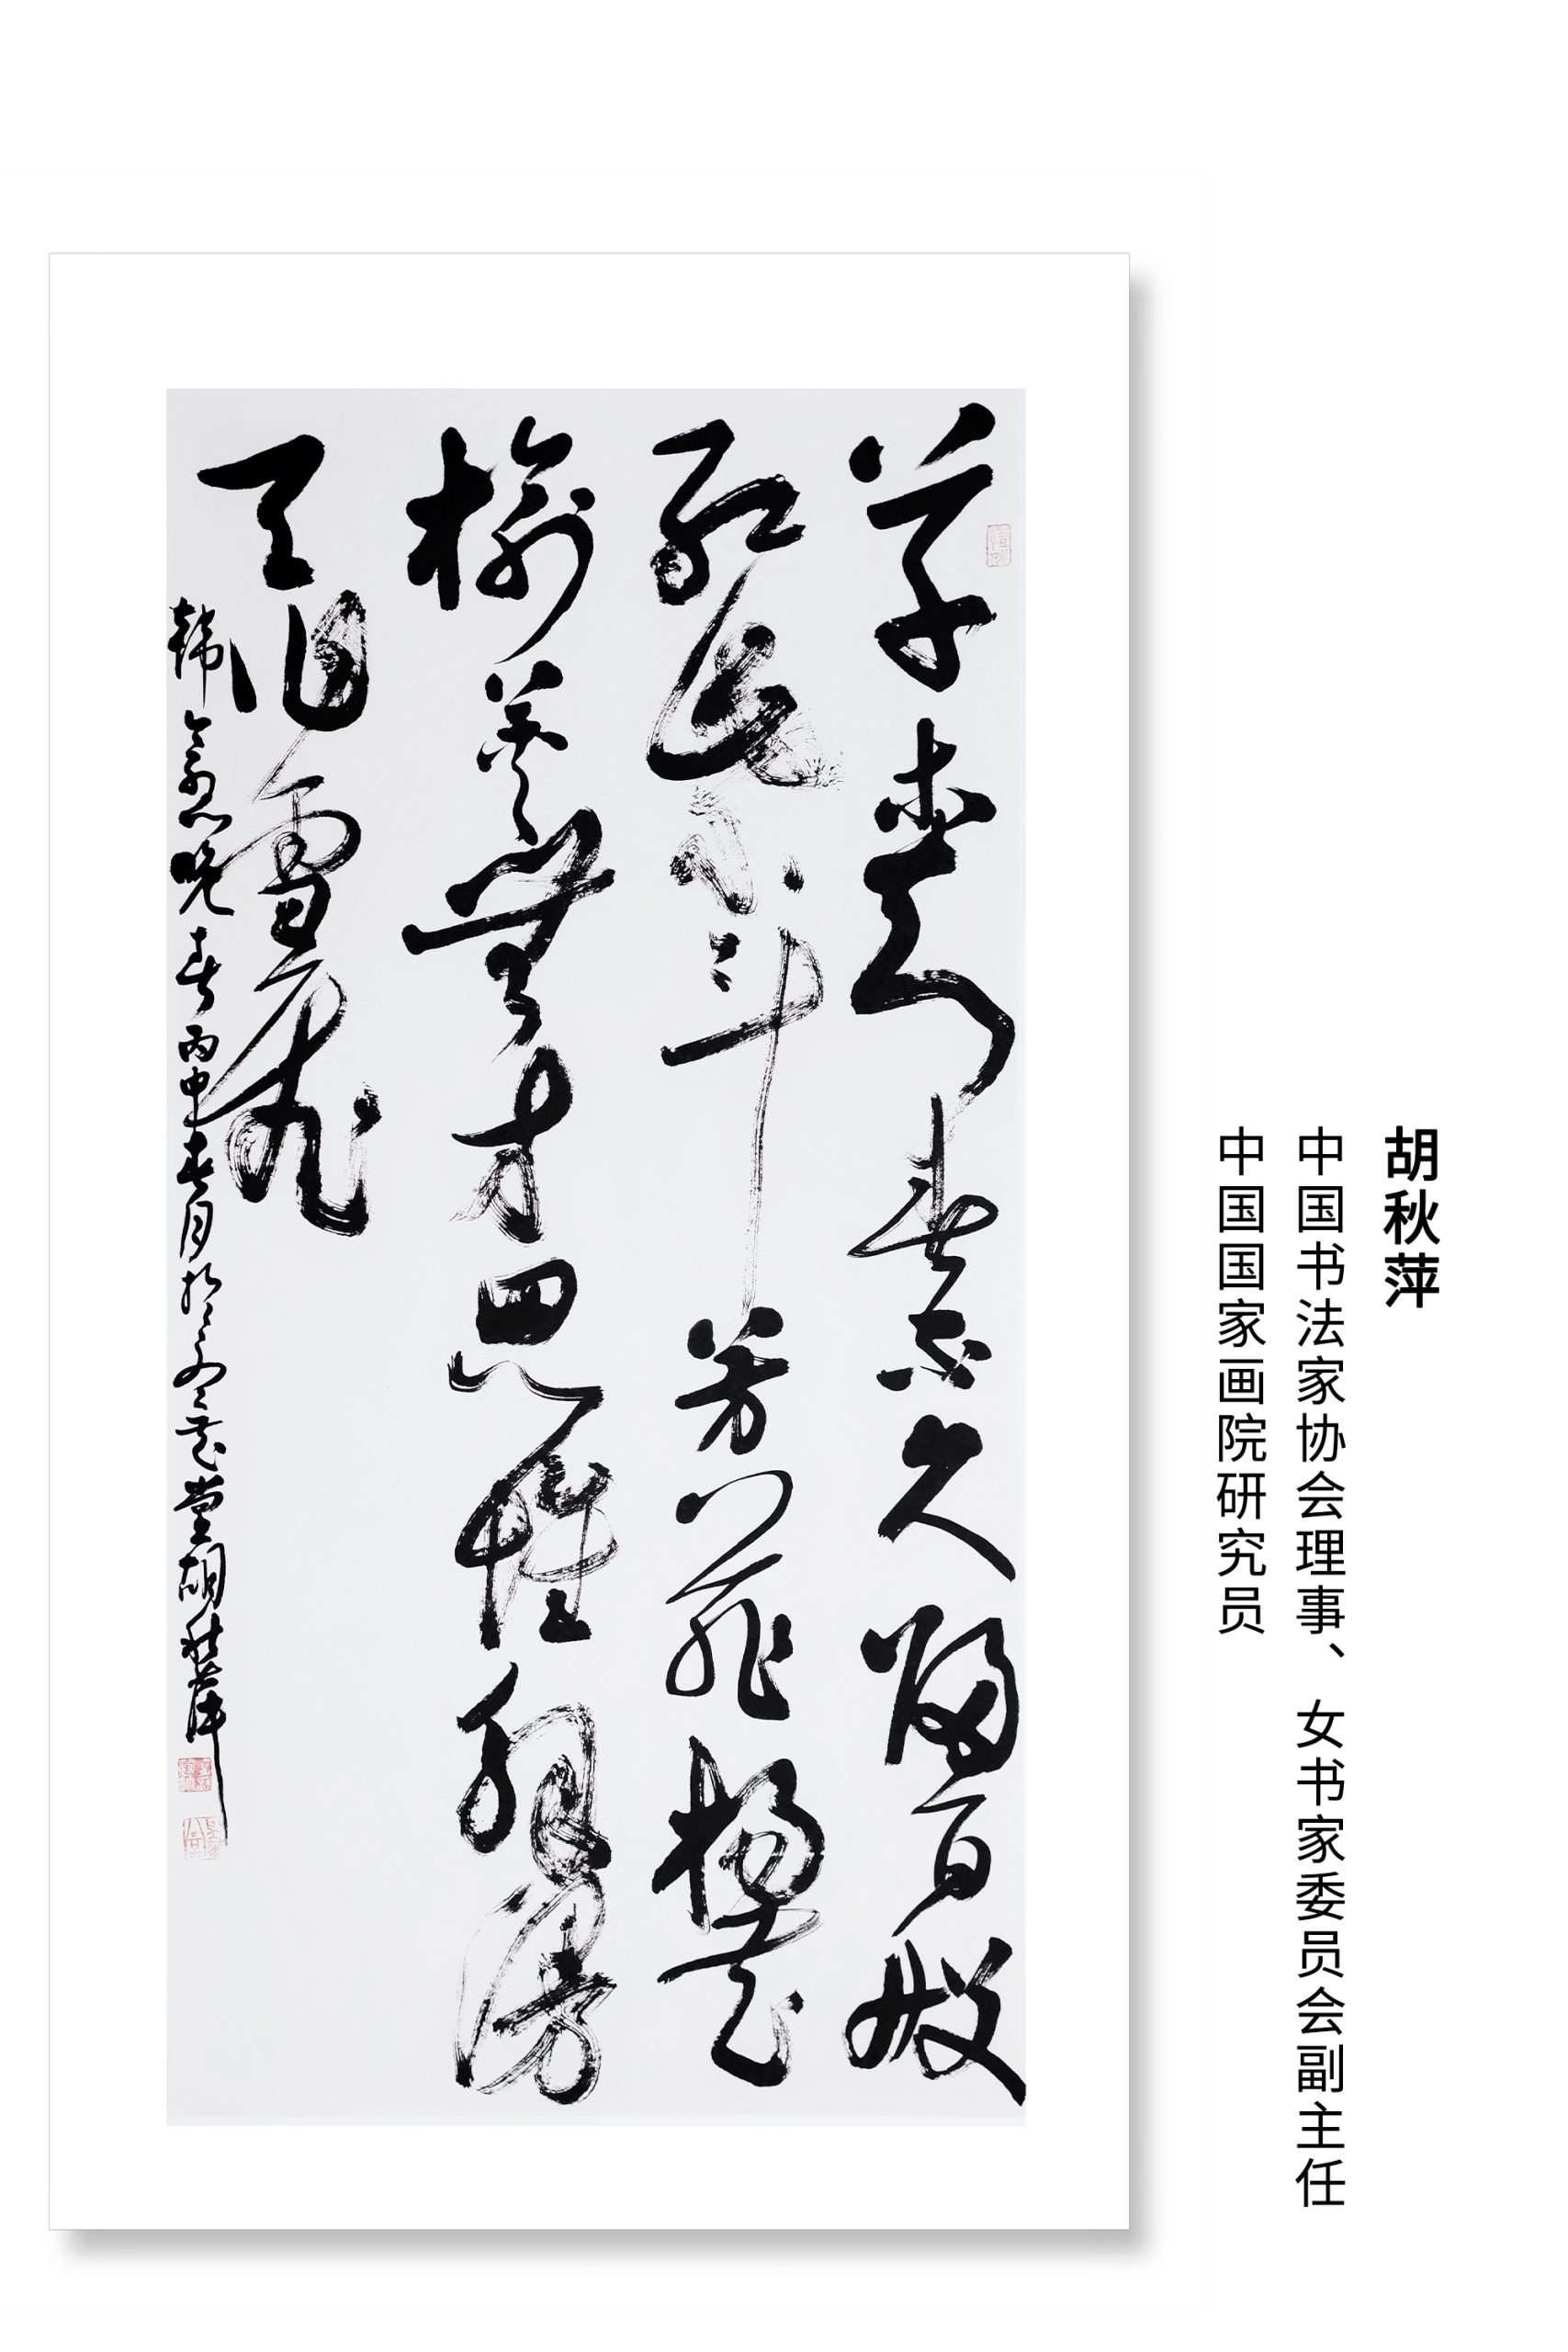 胡秋萍
中国书法家协会理事、女书家委员会副主任
中国国家画院研究员
草木知春不久歸百般
紅紫斗芳菲楊花
榆莢無才思惟解漫
天作雪飛
韓愈晚春丙申春月於堂胡秋萍